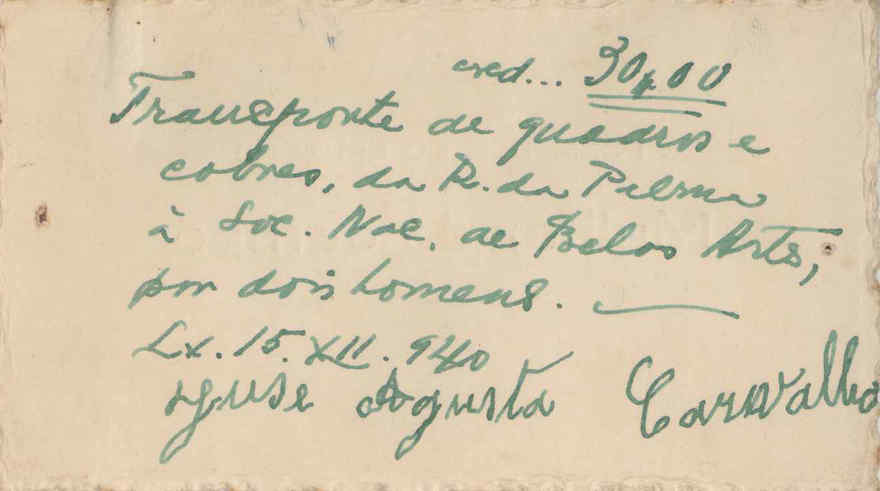 esc... 30$00
Transporte de quadros e
cobres, da R. da Palma
à Soc. Nac. de Belas Artes,
por dois homens.
Lx. 15.XII.940
Agusta Carvalho